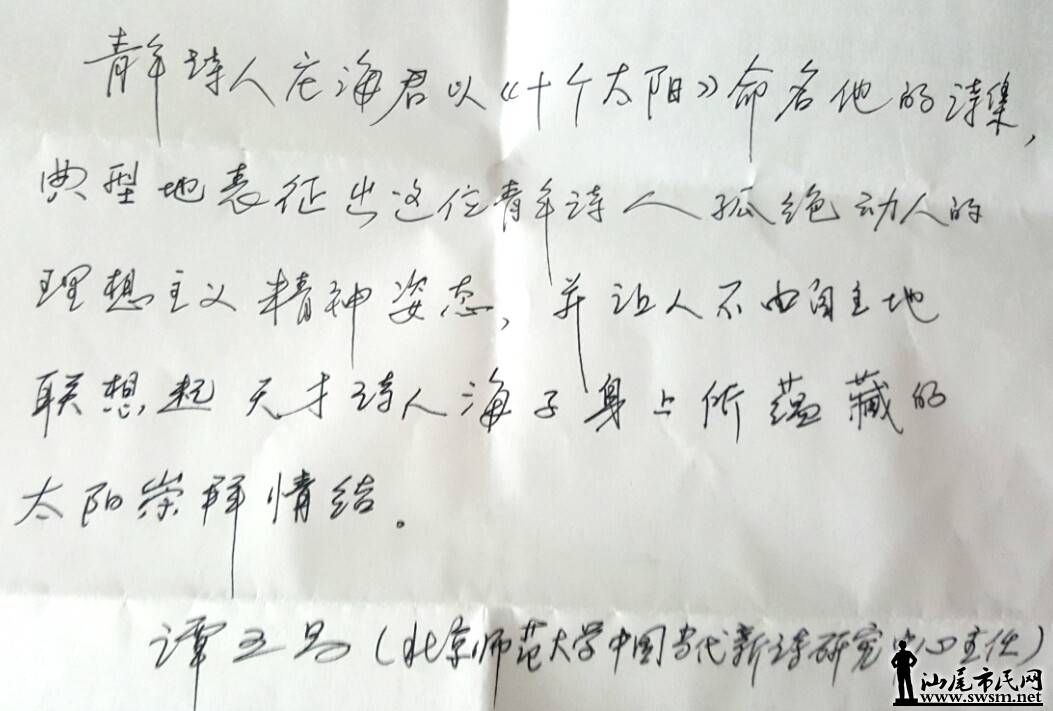 青年诗人庄海君以《十个太阳》命名他的诗集，
典型地表征出这位青年诗人孤绝动人的
理想主义精神姿态，并让人不由自主地
联想起天才诗人海子身上所蕴藏的
太阳崇拜情结。
谭五昌（北京师范大学中国当代新诗研究中心主任）
汕尾市民网
www.swsm.net